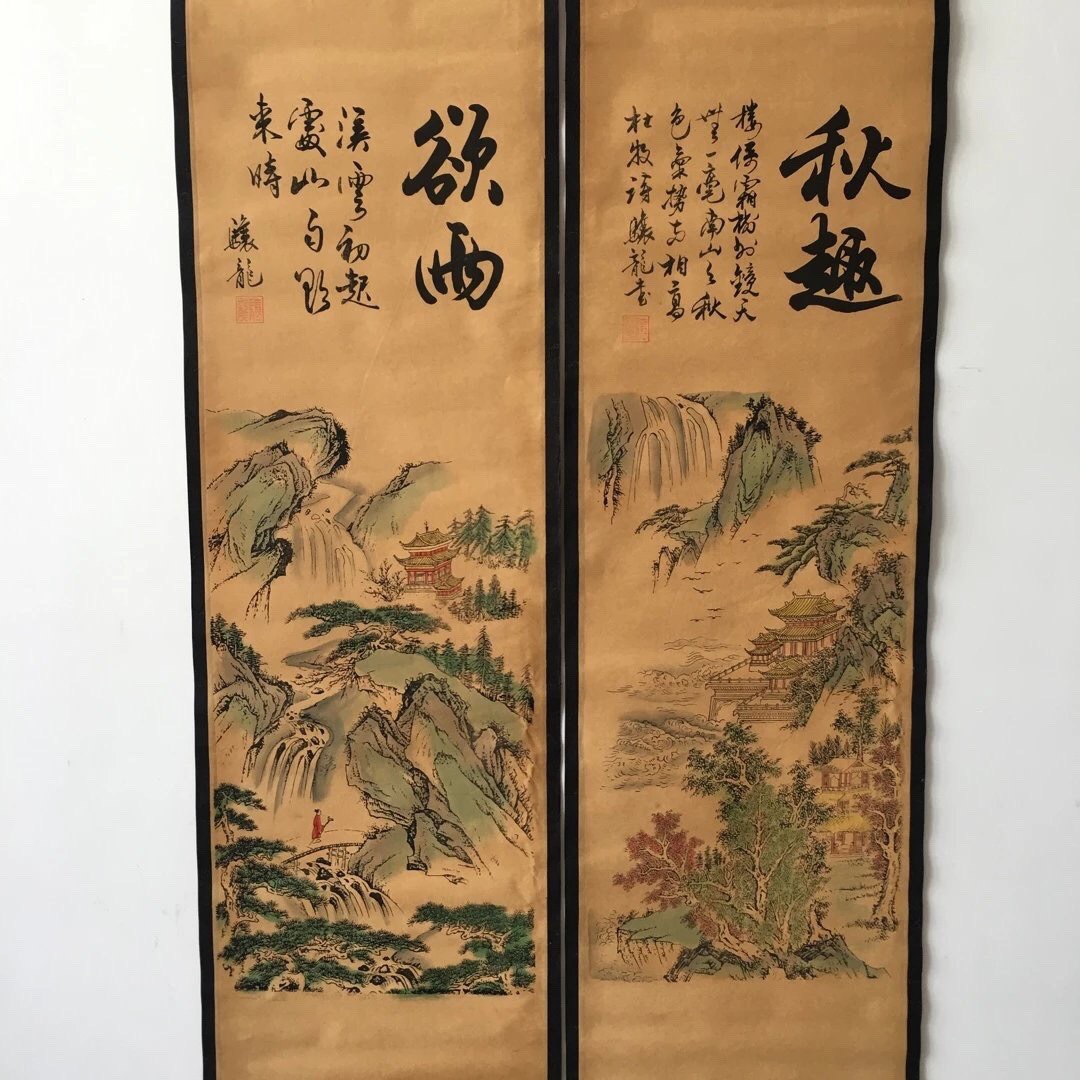 秋趣
楼倚霜樹外鏡天
無一毫南山与秋
色氣勢兩相高
杜牧詩驤龍书
欲雨
溪雲初起
處山雨欲
来時
驤龍